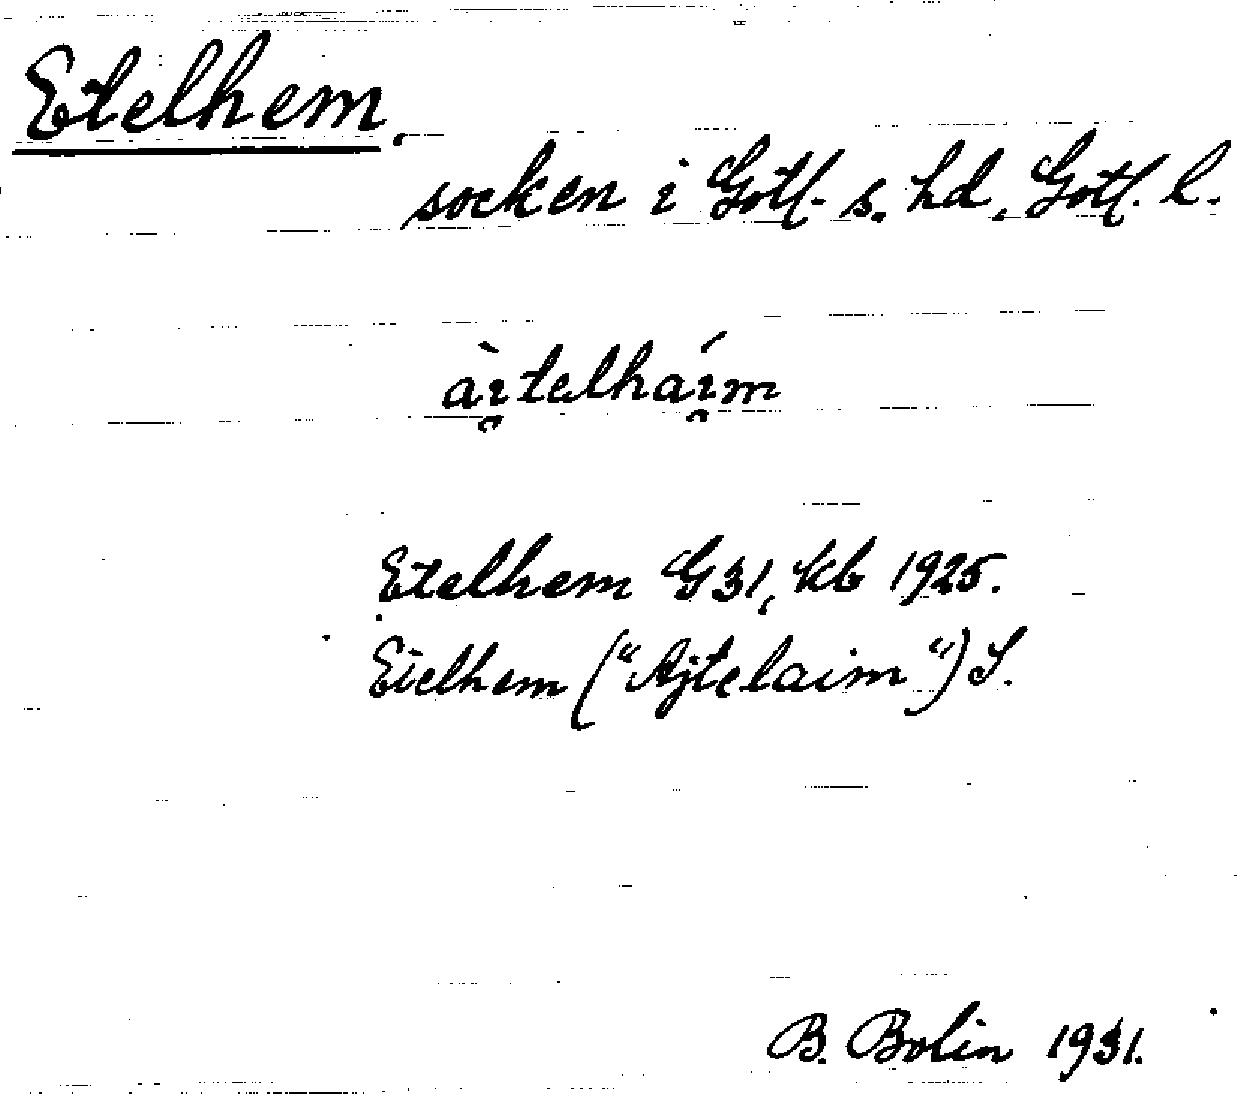 Etelhem.
socken i Gotl. s. hd, Gotl. l.
ài̯telhái̯m
Etelhem G31, kb 1925.
Etelhem ("Ajtelaim") S.
B. Bolin 1931.